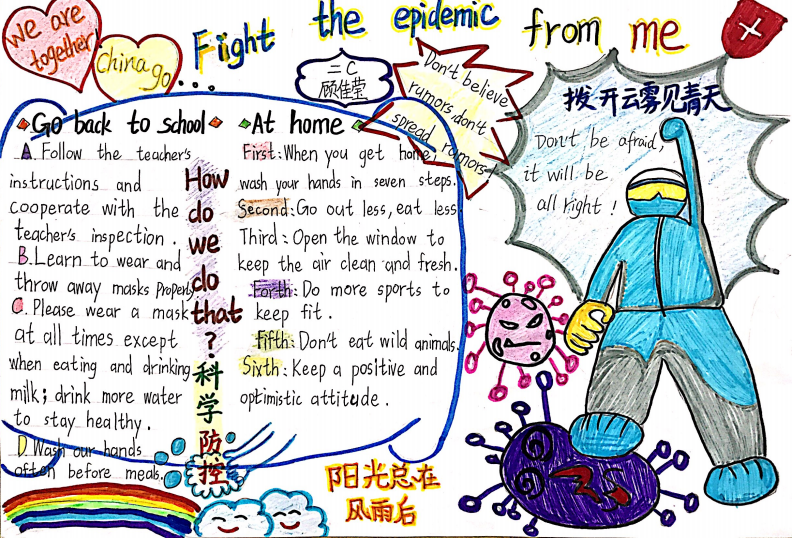 we are
together
china go...
Fight the epidemic from me
二C
顾佳莹
Don't believe
rumors,don't
spread rumors!
拨开云雾见青天
Don't be afraid,
it will be
all right!
Go back to school
A.Follow the teacher's
instructions and
cooperate with the
teacher's inspection.
B.Learn to wear and
throw away masks Properly
C.Please wear a mask
at all times except
when eating and drinking
milk; drink more water
to stay healthy.
D Wash our hands
often before meals.
How
do
we
do
that
?
科
学
防
控
At home
First:When you get home,
wash your hands in seven steps.
Second:Go out less,eat less
Third:Open the window to
keep the air clean and fresh.
Forth:Do more sports to
keep fit.
fifth:Don't eat wild animals.
Sixth:Keep a positive and
optimistic attitude.
阳光总在
风雨后